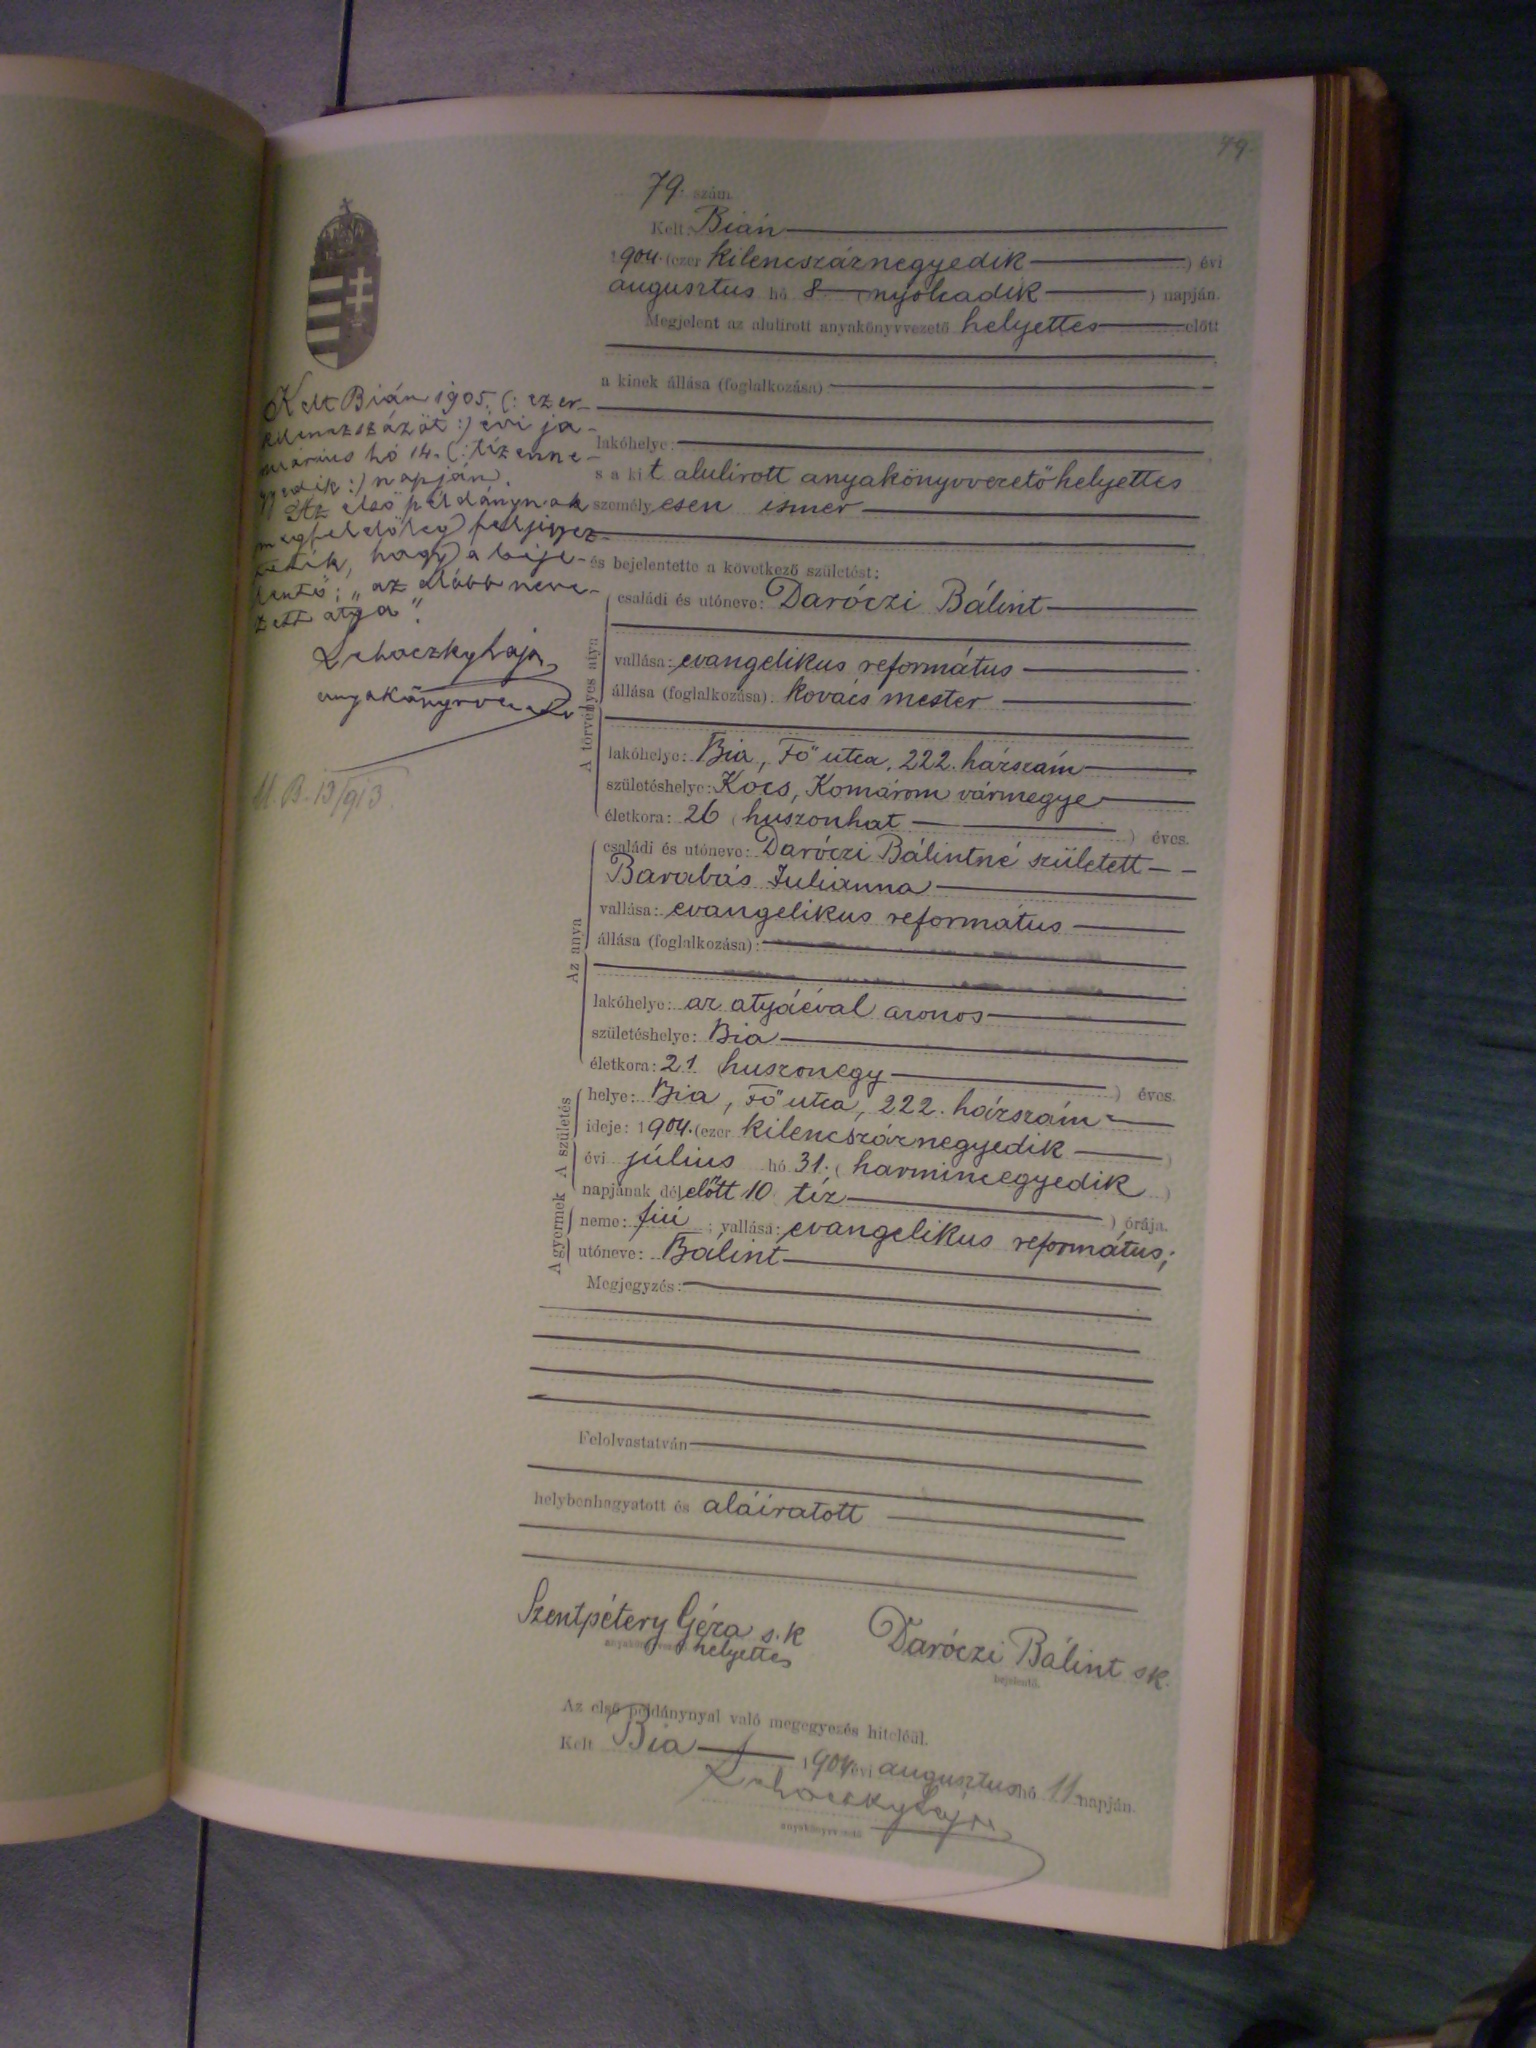 79.
79. szám.
Kelt: Bián
1904. (ezer kilencszáznegyedik) évi
augusztus hó 8 (nyolcadik) napján.
Megjelent az alulirott anyakönyvvezető helyettes előtt
a kinek állása (foglalkozása)
lakóhelye:
s a kit alulirott anyakönyvvezető helyettes
személyesen ismer
és bejelentette a következő születést:
A törvényes atya
családi és utóneve: Daróczi Bálint
vallása: evangelikus református
állása (foglalkozása): kovács mester
lakóhelye: Bia, Fő utca, 222. házszám
születéshelye: Kocs, Komárom vármegye
életkora: 26 (huszonhat) éves.
Az anya
családi és utóneve: Daróczi Bálintné született
Barabás Julianna
vallása: evangelikus református
állása (foglalkozása):
lakóhelye: az atyáéval azonos
születéshelye: Bia
életkora: 21 huszonegy) éves.
A születés
helye: Bia, Fő utca, 222. házszám
ideje: 1904. (ezer kilencszáznegyedik)
évi július hó 31. (harmincegyedik)
napjának délelőtt 10 tíz) órája.
A gyermek
neme: fiú; vallása: evangelikus református;
utóneve: Bálint
Megjegyzés:
Felolvastatván
helybenhagyatott és aláiratott
Szentpétery Géza s.k
anyakönyvvezető helyettes
Daróczi Bálint sk.
bejelentő.
Az első példánynyal való megegyezés hiteléül.
Kelt Bia 1904 évi augusztus hó 11 napján.
Lehoczky Lajos
anyakönyvvezető
Kelt Bián 1905. (: ezer-
kilenczszázöt :) évi ja-
nuárius hó 14. (: tizenne-
gyedik :) napján.
Az első példánynak
megfelelőleg feljegyez-
tetik, hogy a beje-
lentő: „az alább neve-
zett atya".
Lehoczky Lajos
anyakönyvvezető